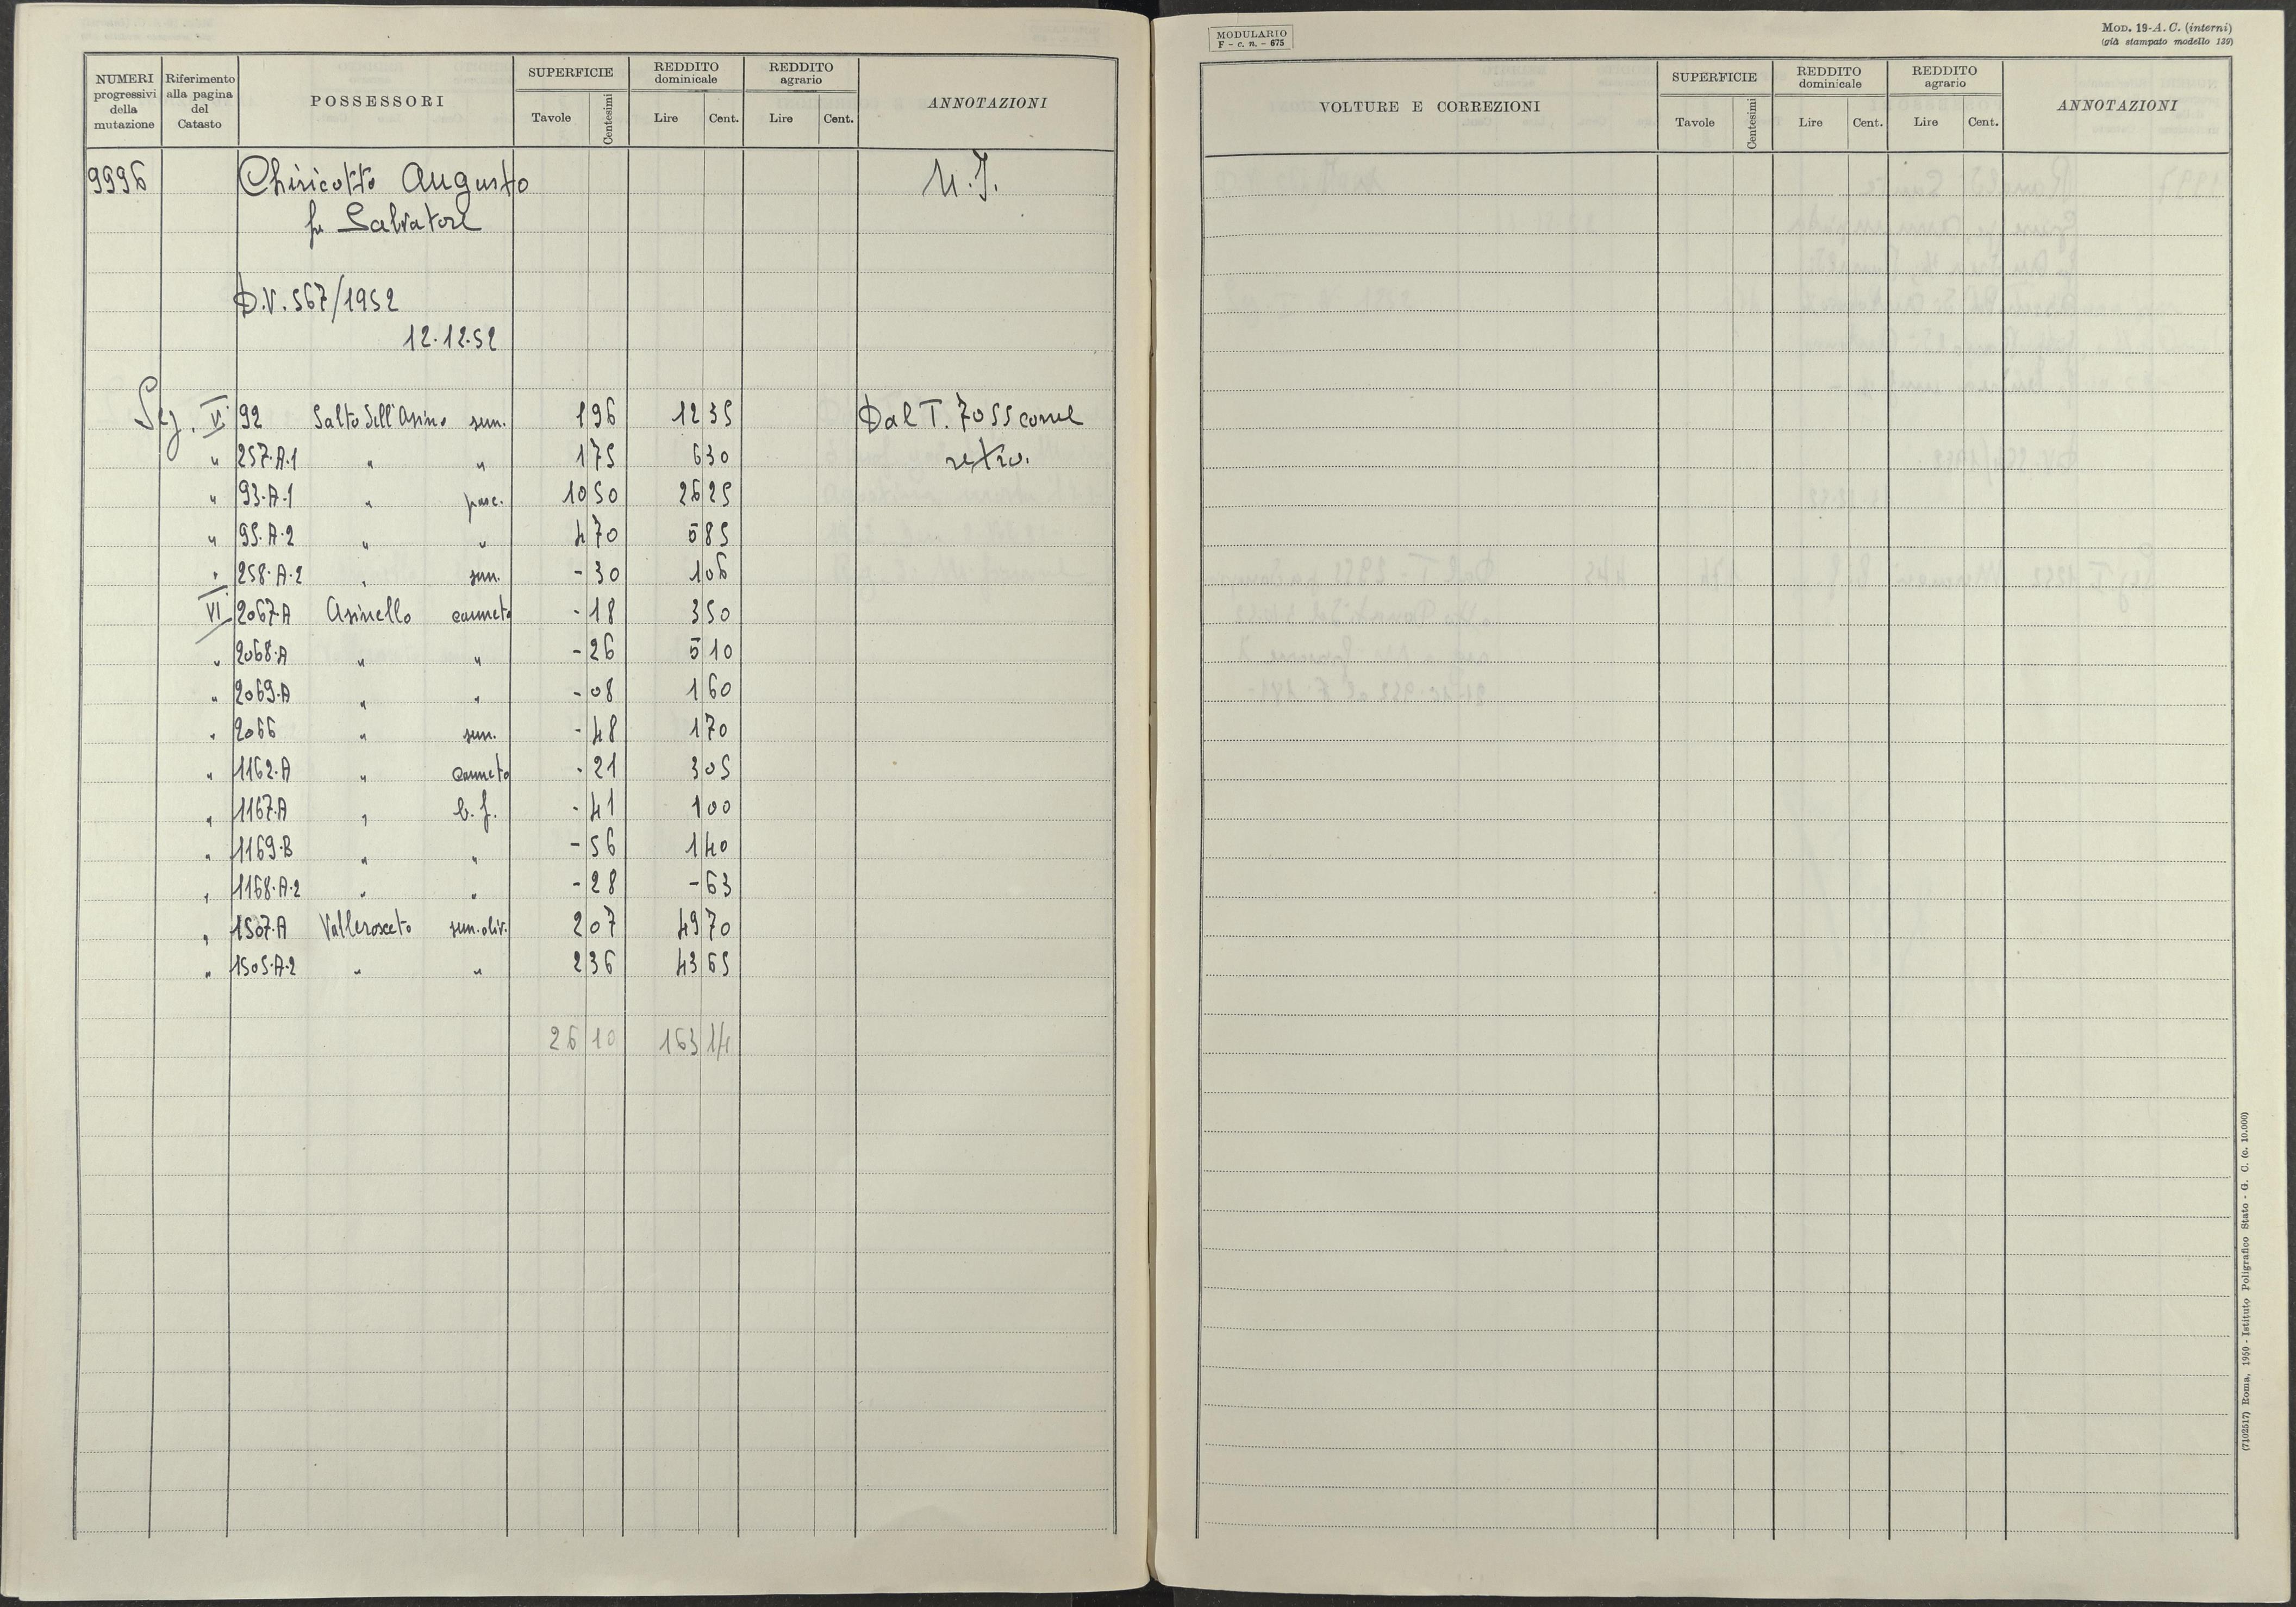 NUMERI progressivi della mutazione | Riferimento alla pagina del Catasto | POSSESSORI | SUPERFICIE Tavole Centesimi | REDDITO dominicale Lire Cent. | REDDITO agrario Lire Cent. | ANNOTAZIONI
9996 Chiricotto Augusto U.I.
fu Salvatore
D.V. 567/1952
12.12.52
Sez. V. 92 Salto dell'Asino sem. 1 96 12 35 Dal T. 7055
" 257-A-1 " " 1 75 6 30 retro.
" 93-A-1 " pasc. 10 50 26 25
" 95-A-2 " " 4 70 5 85
" 258-A-2 " sem. - 30 1 06
VI 2067-A Asinello canneto - 18 3 50
" 2068-A " " - 26 5 10
" 2069-A " " - 08 1 60
" 2066 " sem. - 48 1 70
" 1162-A " canneto - 21 3 05
" 1167-A " b.f. - 41 1 00
" 1169-B " " - 56 1 40
" 1168-A-2 " " - 28 - 63
" 1507-A Valleroseto sem. oliv. 2 07 49 70
" 1505-A-2 " " 2 36 43 65
26 10 163 14
MODULARIO
F - c. n. - 675
MOD. 19-A. C. (interni)
(già stampato modello 139)
VOLTURE E CORREZIONI | SUPERFICIE Tavole Centesimi | REDDITO dominicale Lire Cent. | REDDITO agrario Lire Cent. | ANNOTAZIONI
(7102517) Roma, 1950 - Istituto Poligrafico Stato - G. C. (c. 10.000)